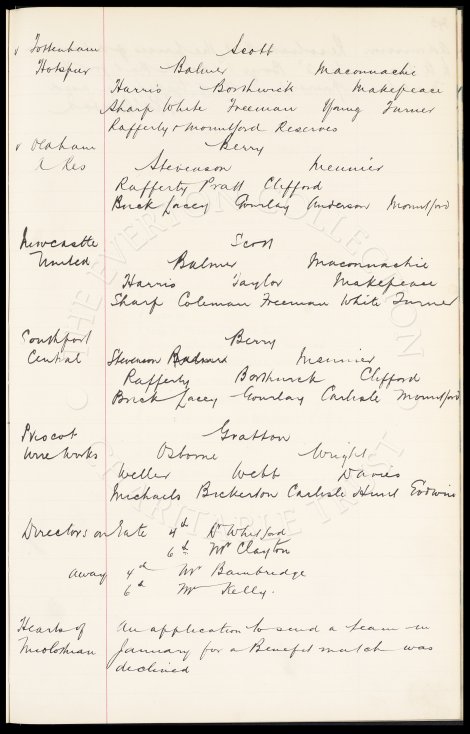 v Tottenham Scott
Hotspur Balmer Maconnachie
Harris Borthwick Makepeace
Sharp White Freeman Young Turner
Rafferty & Mountford Reserves
v Oldham Berry
A Res Stevenson Meunier
Rafferty Pratt Clifford
Buck Lacey Gourlay Anderson Mountford
Newcastle Scott
United Balmer Maconnachie
Harris Taylor Makepeace
Sharp Coleman Freeman White Turner
Southport Berry
Central Stevenson Meunier
Rafferty Borthwick Clifford
Buck Lacey Gourlay Carlisle Mountford
Prescot Gratton
Wire Works Osborne Wright
Weller Webb Davies
Michaels Bickerton Carlisle Hunt Godwin
Directors on Gate 4th Dr Whitford
6th Mr Clayton
away 4th Mr Bainbridge
6th Mr Kelly.
Hearts of An application to send a team in
Midlothian January for a Benefit match was
declined
THE EVERTON COLLECTION
CHARITABLE TRUST